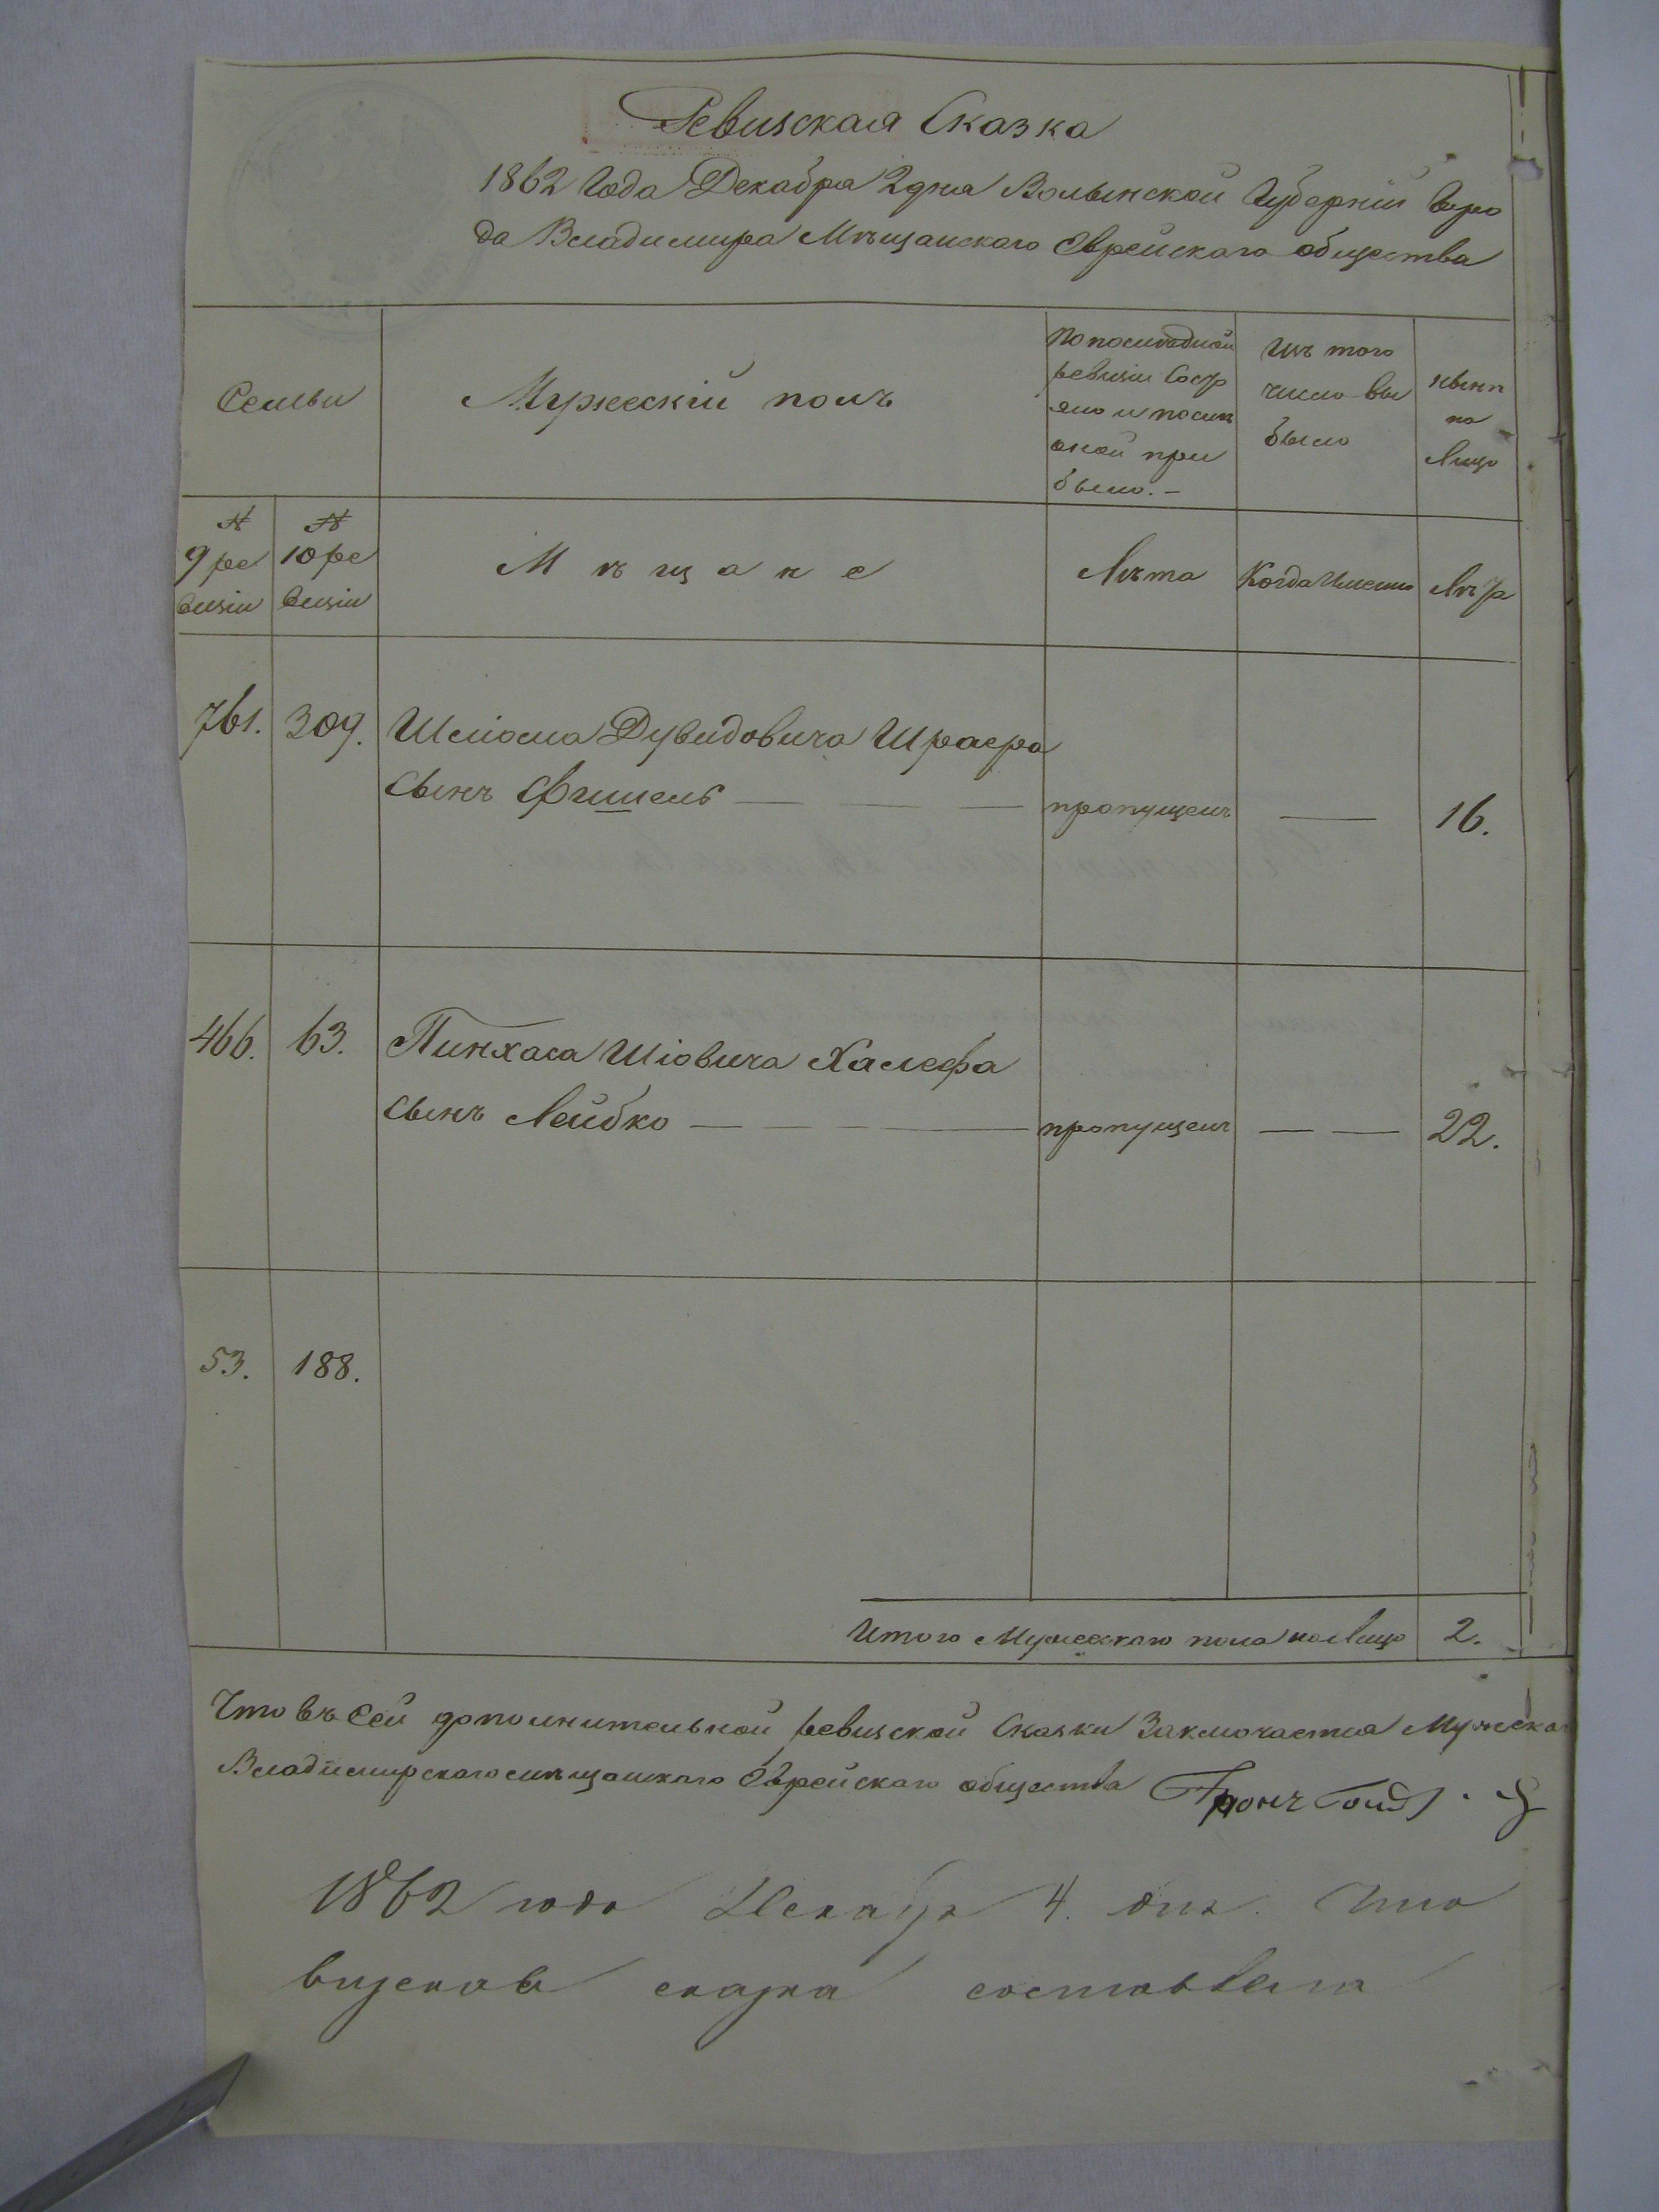 Ревизская Сказка
1862 Года Декабря 2 дня Волынской Губерніи Горо
да Владимира Мѣщанскаго Еврейскаго общества
Семьи
Мужескій полъ
По последней
ревизіи Состо
яло и после
оной при
было. —
Изъ того
число вы
было
нынѣ
на
Лицо
№
9 ре
визіи
№
10 ре
визіи
Мѣщане
Лѣта
Когда Именно
Лѣта
761. 309. Шліома Дувидовича Шраера
сынъ Фишель — — — пропущенъ — 16.
466. 63. Пинхаса Шіовича Халефа
сынъ Лейбко — — — — пропущенъ — — 22.
53. 188.
Итого Мужескаго пола на Лицо 2.
Что въ Сей дополнительной ревизской Сказки Заключается Мужескаго
Владимирскаго мѣщанскаго Еврейскаго общества
1862 года Декабря 4. дня. Что
визская сказка составлена